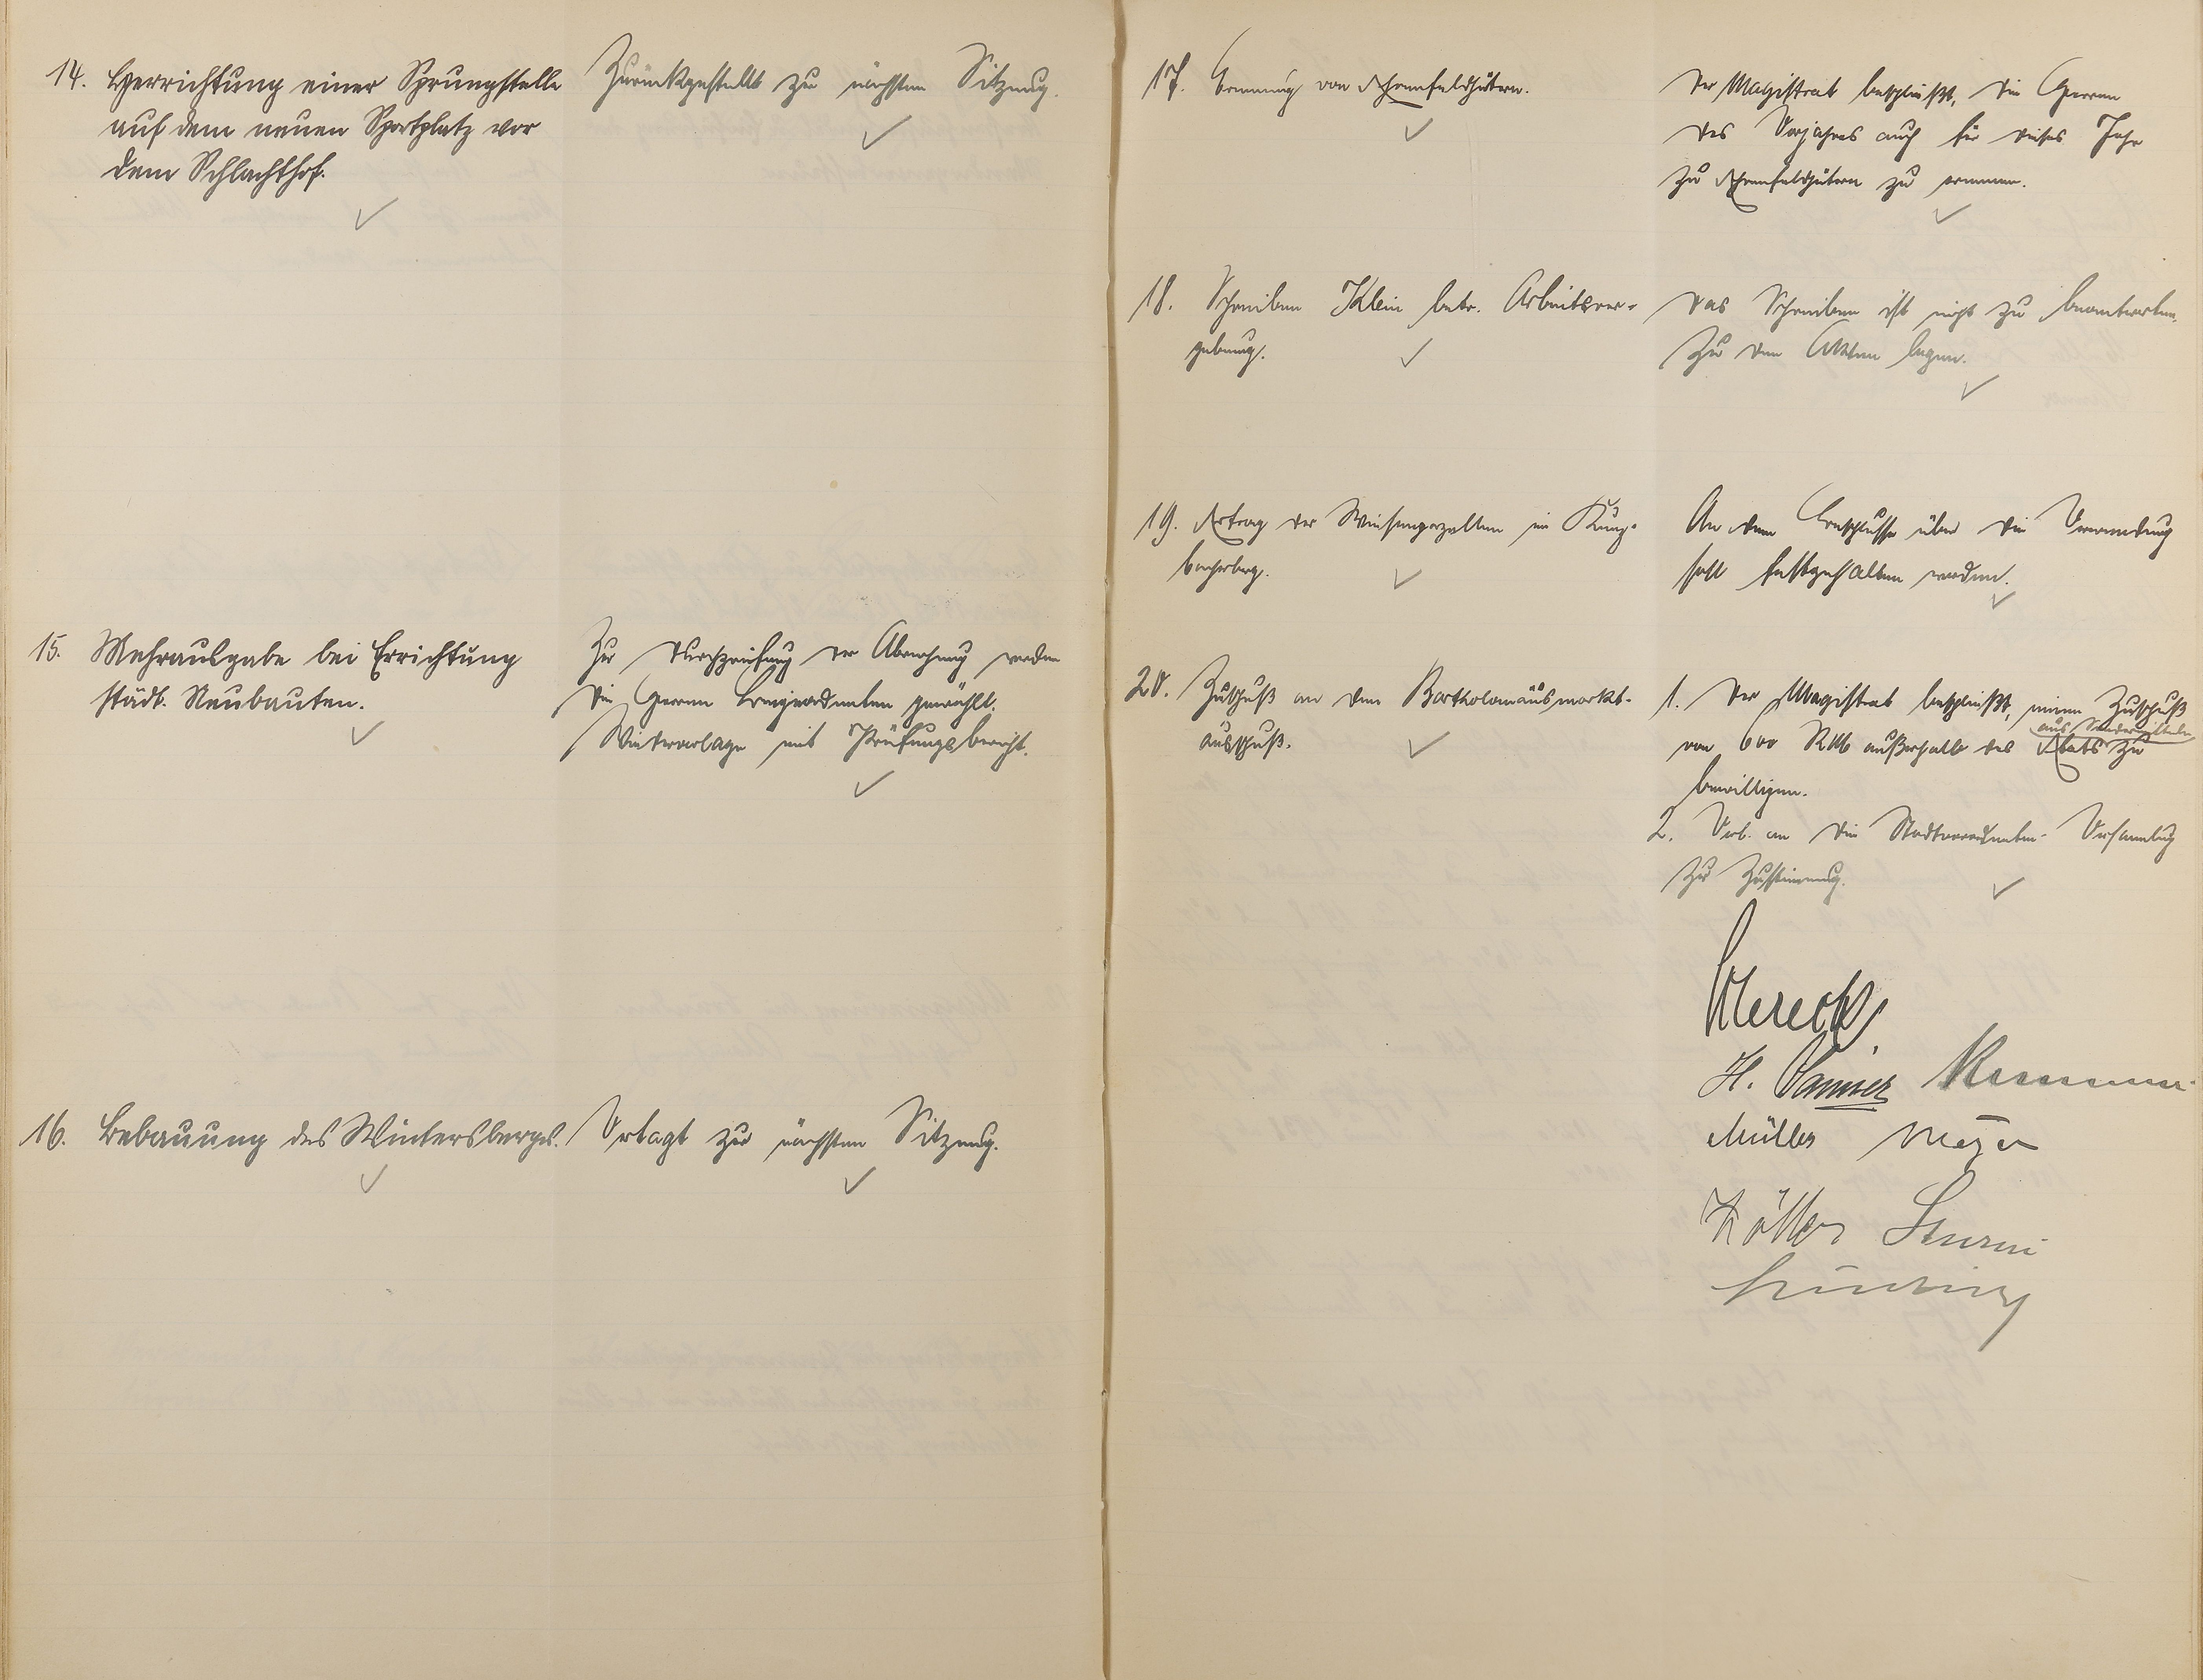 14. Herrichtung einer Sprungstelle
auf dem neuen Sportplatz vor
dem Schlachthof.
Zurückgestellt zur nächsten Sitzung.
15. Mehrausgabe bei Errichtung
städt. Neubauten.
Zur Durchprüfung der Abrechnung werden
die Herren gewählt.
Wiedervorlage mit Prüfungsbericht.
16. Bebauung des Wintersberges.
Vertagt zur nächsten Sitzung.
17. Ernennung von Ehrenfeldhütern.
Der Magistrat beschließt, die Herren
des Vorjahres auch für dieses Jahr
zu Ehrenfeldhütern zu ernennen.
18. Schreiben Klein betr. Arbeitsver-
gebung.
Das Schreiben ist nicht zu beantworten.
Zu den Akten legen.
19. Ertrag der Wiesenparzellen im
An dem Beschlusse über die Verwendung
soll festgehalten werden.
20. Zuschuß an den Bartholomäusmarkt-
ausschuß.
1. Der Magistrat beschließt, einen Zuschuß
aus Sondermitteln
von 600 RM außerhalb des Etats zu
bewilligen.
2. Urb. an die Stadtverordneten-Versammlung
zur Zustimmung.
H.
Müller Meyer
Sturm